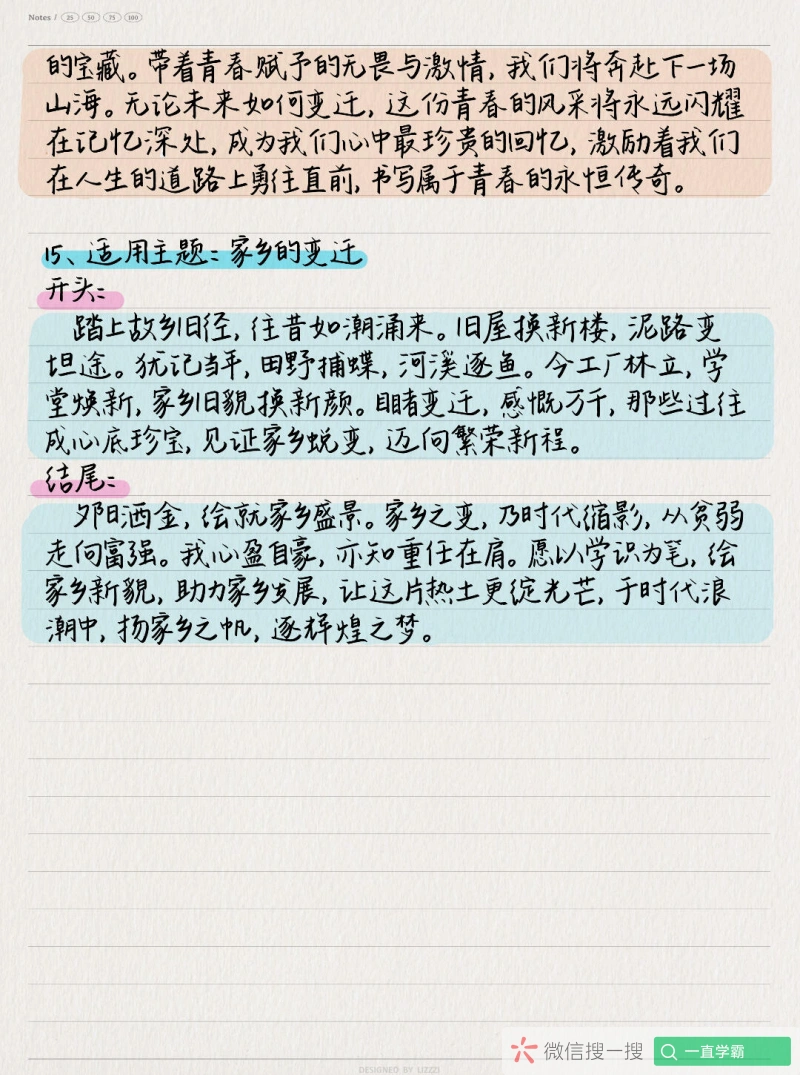 Notes / 25 50 75 100
的宝藏。带着青春赋予的无畏与激情,我们将奔赴下一场
山海。无论未来如何变迁,这份青春的风采将永远闪耀
在记忆深处,成为我们心中最珍贵的回忆,激励着我们
在人生的道路上勇往直前,书写属于青春的永恒传奇。
15、适用主题:家乡的变迁
开头:
踏上故乡旧径,往昔如潮涌来。旧屋换新楼,泥路变
坦途。犹记当年,田野捕蝶,河溪逐鱼。今工厂林立,学
堂焕新,家乡旧貌换新颜。目睹变迁,感慨万千,那些过往
成心底珍宝,见证家乡蜕变,迈向繁荣新程。
结尾:
夕阳洒金,绘就家乡盛景。家乡之变,乃时代缩影,从贫弱
走向富强。我心盈自豪,亦知重任在肩。愿以学识为笔,绘
家乡新貌,助力家乡发展,让这片热土更绽光芒,于时代浪
潮中,扬家乡之帆,逐辉煌之梦。
微信搜一搜 一直学霸
DESIGNED BY LIZZZI